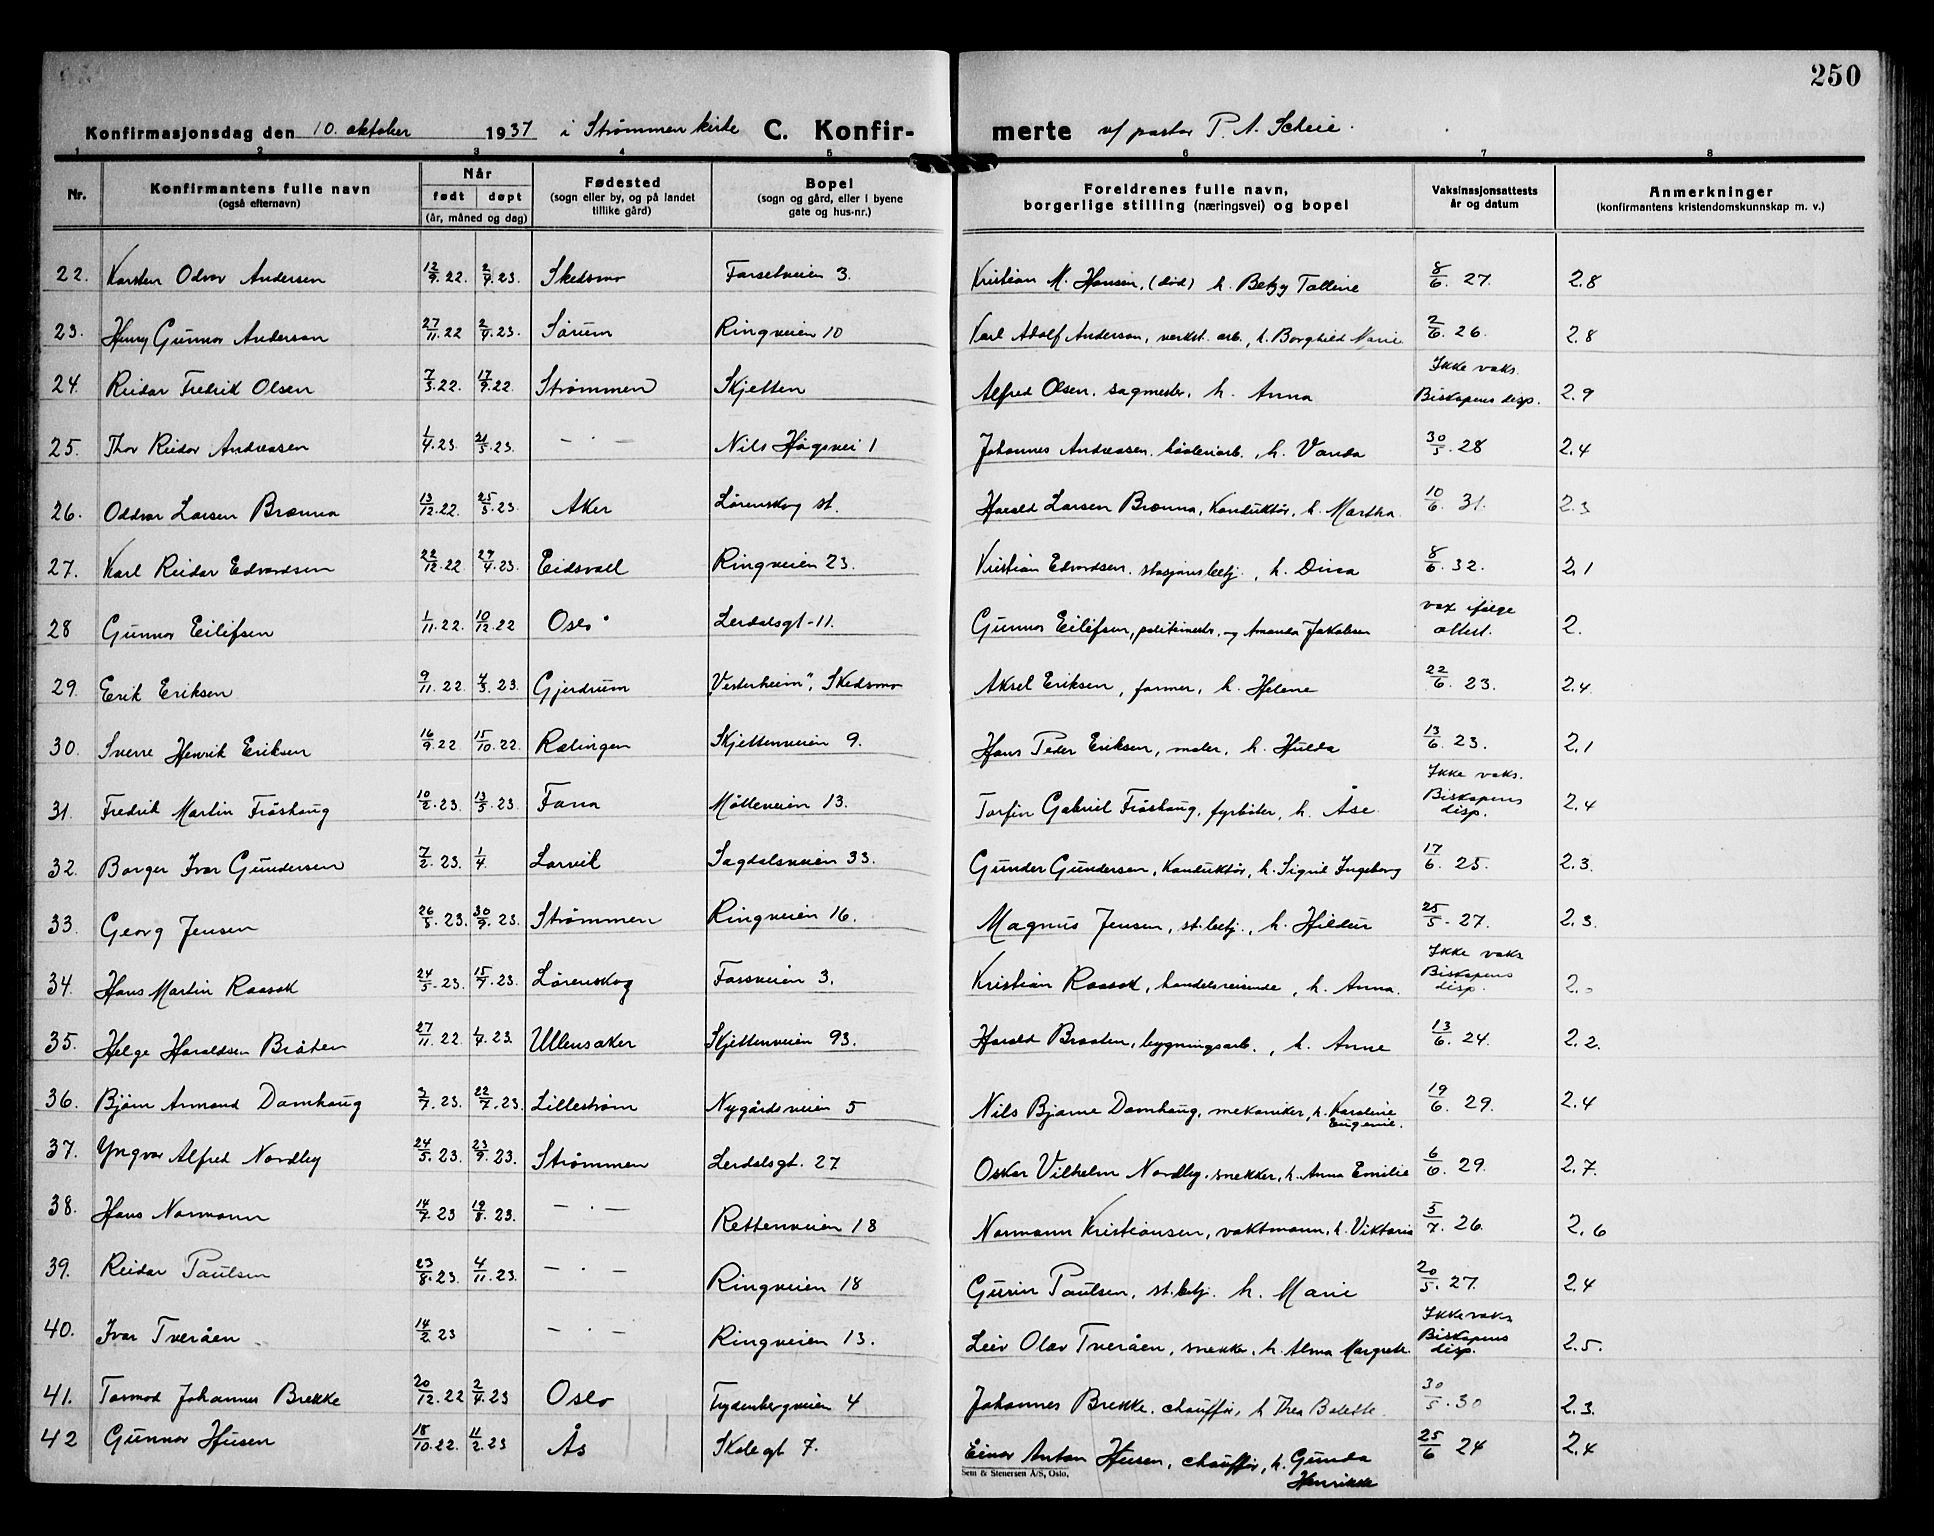 250
Konfirmasjonsdag den 10. oktober 1937 i Strømmen kirke C. Konfirmerte v/ pastor P. A. Scheie.
1 2 3 4 5 6 7 8
Nr. Konfirmantens fulle navn (også efternavn) Når født døpt (år, måned og dag) Fødested (sogn eller by, og på landet tillike gård) Bopel (sogn og gård, eller i byene gate og hus-nr.) Foreldrenes fulle navn, borgerlige stilling (næringsvei) og bopel Vaksinasjonsattests år og datum Anmerkninger (konfirmantens kristendomskunnskap m. v.)
22. Karsten Odvar Andersen 12/9.22. 2/4.23. Skedsmo Farsetveien 3. Kristian M. Hansen, (død) h. Betzy Talline 8/6 27. 2.8
23. Henry Gunnar Anderson 27/11.22 2/4.23. Sørum Ringveien 10 Karl Adolf Anderson, verkst. arb., h. Borghild Marie 2/6 26. 2.8
24. Reidar Fredrik Olsen 7/3.22. 17/9.22. Strømmen Skjetten Alfred Olsen. sagmester. h. Anna Ikke vaks. Biskapens disp. 2.9
25. Thor Reidar Andreassen 1/4.23. 21/5.23 — . — Nils Høgsvei 1 Johannes Andreassen. h. Vanda 30/5.28 2.4
26. Oddvar Larsen Brænna 13/12.22. 25/3.23. Aker Lørenskog st. Harald Larsen Brænna, Konduktør, h. Martha. 10/6 31. 2.3
27. Karl Reidar Edvardsen 22/12.22 29/4.23. Eidsvoll Ringveien 23. Kristian Edvardsen. stasjonsbetj., h. Dina 8/6.32. 2.1
28 Gunnar Eilifsen 1/11.22. 10/12.22 Oslo Lerdalsgt-11. Gunnar Eilifsen, politimestr. og Amanda Jakobsen vax ifølge attest. 2.
29. Erik Eriksen 9/11.22. 4/3.23. Gjerdrum "Vesterheim", Skedsmo Aksel Eriksen, former, h. Helene 22/6 23. 2.4.
30. Sverre Henrik Eriksen 16/9.22 15/10.22. Rælingen Skjettenveien 9. Hans Peder Eriksen, maler, h. Hulda 13/6 23. 2.1
31. Fredrik Martin Frøshaug 10/2.23. 13/5.23. Fana Mølleveien 13. Torfin Gabriel Frøshaug, fyrbøter, h. Åse. Ikke vaks. Biskapens disp. 2.4
32. Borger Ivar Gundersen 7/2.23. 1/4. Larvik Sagdalsveien 33. Gunder Gundersen, Konduktør, h. Sigrid Ingeborg 17/6.25. 2.3.
33. Georg Jensen 26/5.23. 30/9.23. Strømmen Ringveien 16. Magnus Jensen, st.betj., h. Hildur 25/5.27. 2.3.
34. Hans Martin Raasok 24/5.23. 15/7.23. Lørenskog Farsveien 3. Kristian Raasok, handelsreisende, h. Anna. Ikke vaks Biskapens disp. 2.0
35. Helge Haraldsen Bråten 27/11.22. 1/4.23. Ullensaker Skjettenveien 93. Harald Braaten, bygningsarb., h. Anne 13/6.24. 2.2.
36. Bjørn Armand Damhaug 3/7.23. 22/7.23. Lillestrøm Nygårdsveien 5 Nils Bjarne Damhaug, mekaniker, h. Karoline Eugenie. 19/6 29. 2.4
37. Yngvar Alfred Nordby 24/5.23. 23/9.23. Strømmen Lerdalsgt. 27 Oskar Vilhelm Nordby. snekker, h. Anna Emilie 6/6 29. 2.7.
38. Hans Normann 14/7.23 19/8.23. — . — Rettenveien 18 Normann Kristiansen, vaktmann, h. Viktoria 5/7.26. 2.6
39. Reidar Paulsen 23/8.23. 4/11.23. — . — Ringveien 18 Paulsen, st.betj. h. Marie 20/5.27. 2.4
40. Ivar Tveråen 14/2 23 — . — Ringveien 13. Leiv Olav Tveråen, snekker, h. Alma Margrete. Ikke vaks Biskapens disp. 2.5.
41. Tormod Johannes Brekke 20/12.22 2/4.23 Oslo Frydenbergveien 4 Johannes Brekke. chauffør, h Thea Balette. 30/5.30 2.3.
42 Gunnar Husen 18/10.22. 11/2.23 Ås Skolegt 7. Einar Anton Husen, chauffør, h. Gunda Henrikke 25/6 24 2.4
Sem & Stenersen A/S, Oslo.